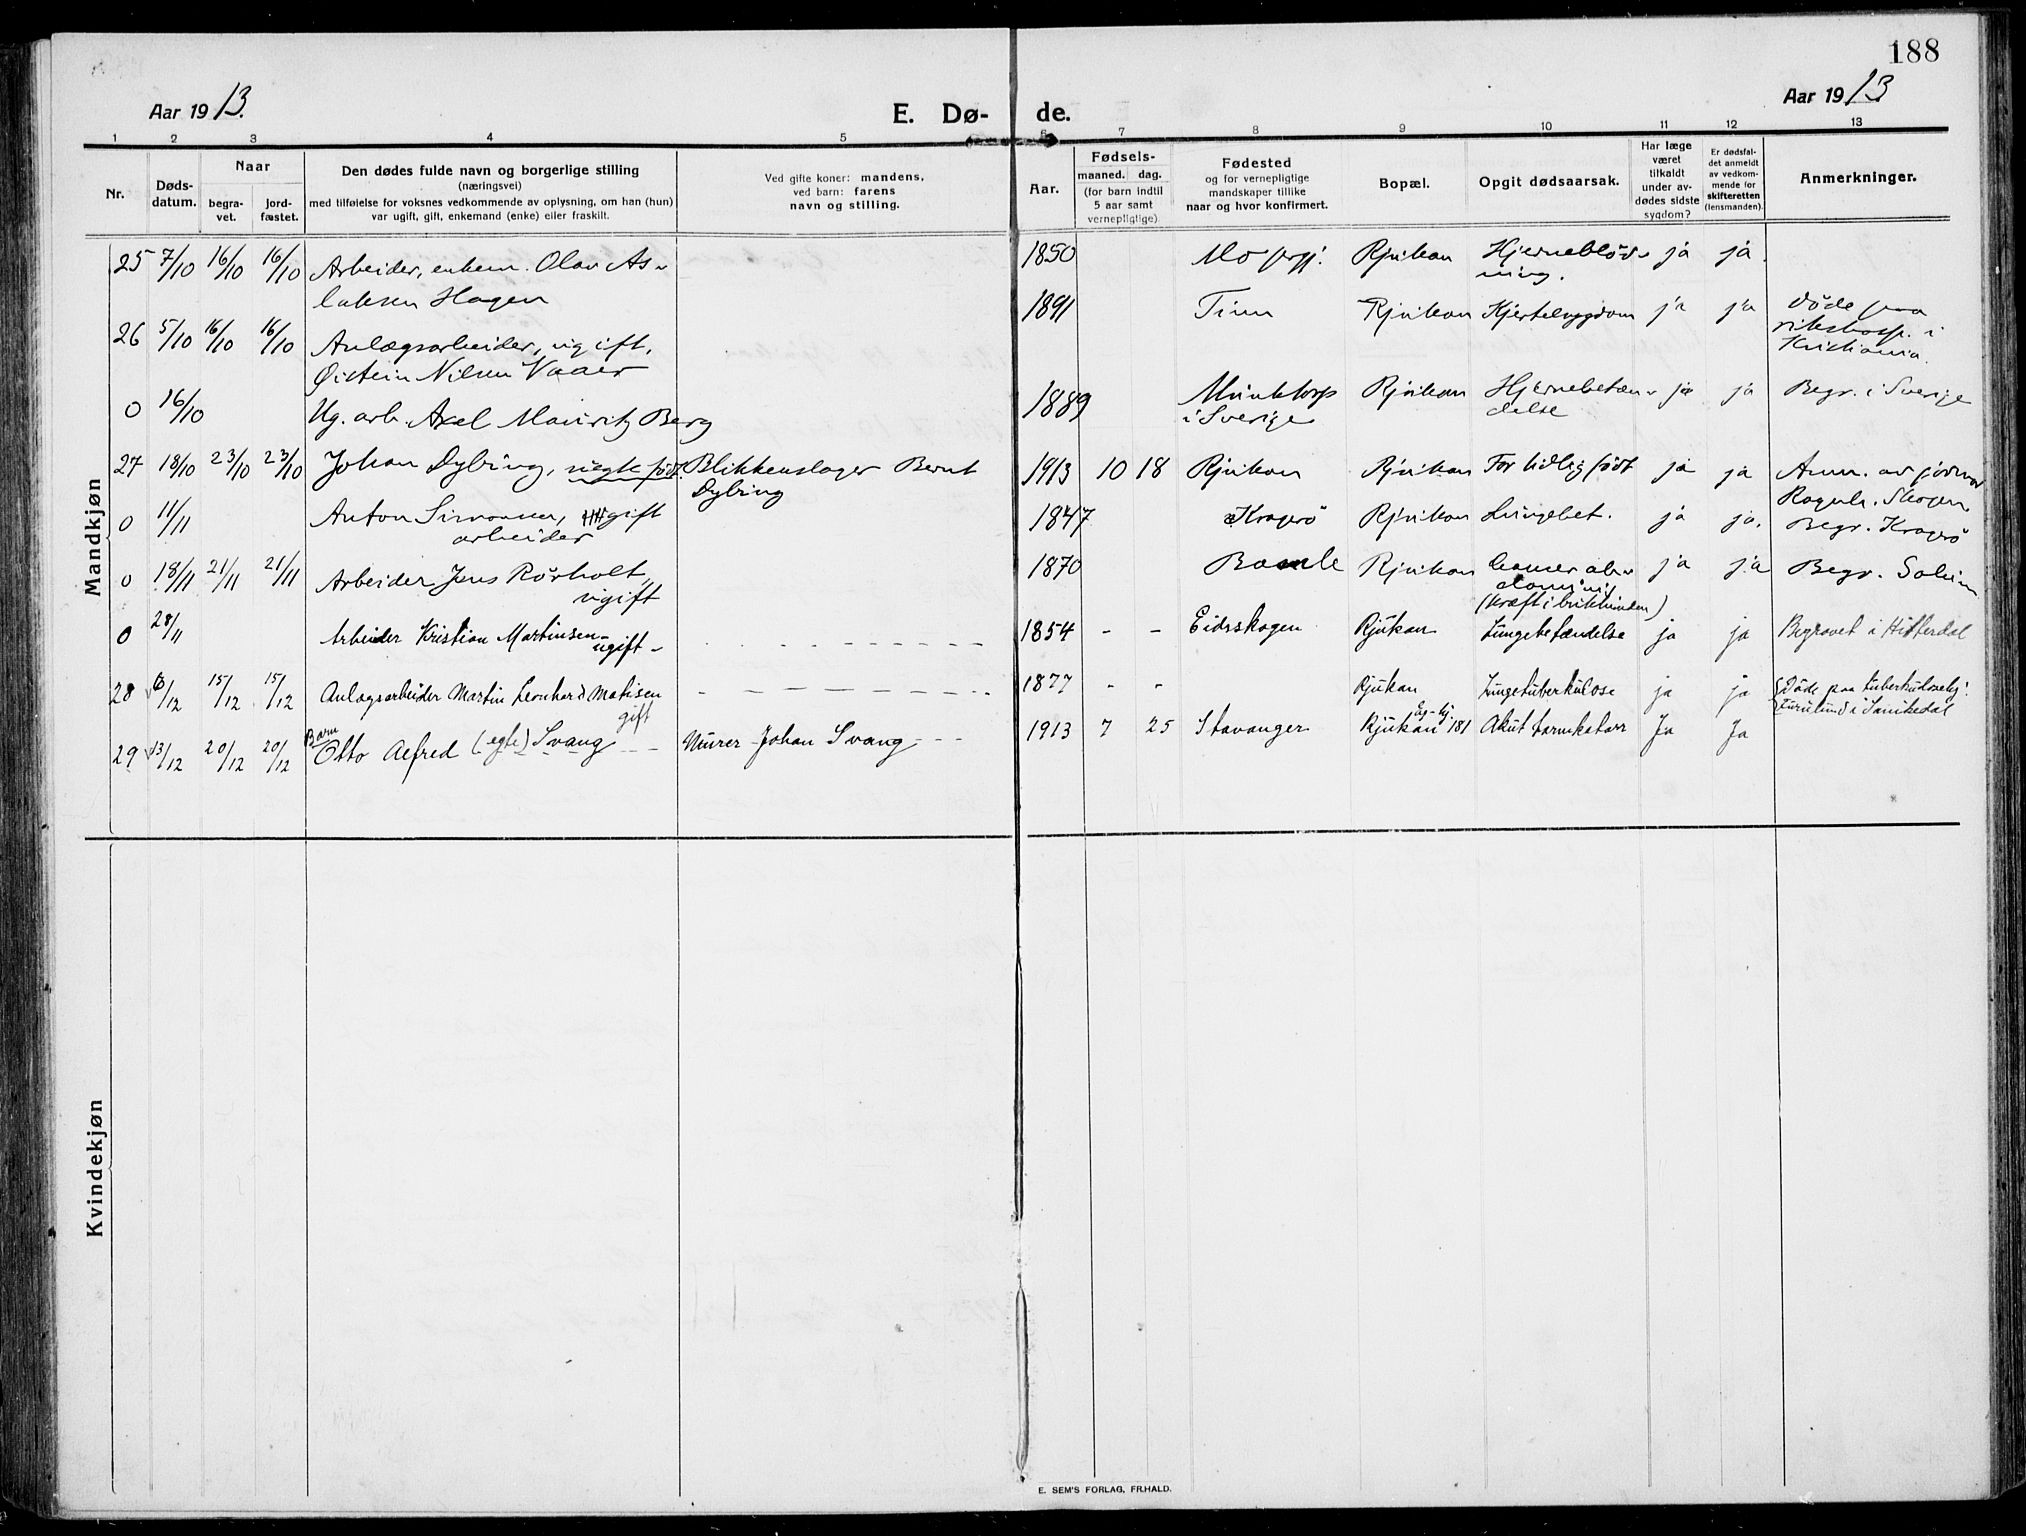 188
Aar 1913.
E. Dø-
de.
Aar 1913
1 2 3 4 5 6 7 8 9 10 11 12 13
Nr.
Døds-
datum.
Naar
begra-
vet.
jord-
fæstet.
Den dødes fulde navn og borgerlige stilling
(næringsvei)
med tilføielse for voksnes vedkommende av oplysning, om han (hun)
var ugift, gift, enkemand (enke) eller fraskilt.
Ved gifte koner: mandens,
ved barn: farens
navn og stilling.
Aar.
Fødsels-
maaned. dag.
(for barn indtil
5 aar samt
vernepligtige).
Fødested
og for vernepligtige
mandskaper tillike
naar og hvor konfirmert.
Bopæl.
Opgit dødsaarsak.
Har læge
været
tilkaldt
under av-
dødes sidste
sygdom?
Er dødsfal-
det anmeldt
av vedkom-
mende for
skifteretten
(lensmanden).
Anmerkninger.
Mandkjøn
25 7/10 16/10 16/10 Arbeider, enkem. Olav As-
laksen Hagen
1850 Mo prgj. Rjukan Hjerneblød-
ning. ja ja.
26 5/10 16/10 16/10 Anlægsarbeider, ugift,
Øistein Nilsen Vaaer
1891 Tinn Rjukan Hjertesygdom ja ja Døde paa
rikshosp. i
Kristiania.
0 16/10 Ug. arb. Axel Mauritz Berg
1889 Munktorp
i Sverige Rjukan Hjernebetæn-
delse ja ja Begr. i Sverige
27 18/10 23/10 23/10 Johan Dybing, uegte født. Blikkenslager Bernt
Dybing
1913 10 18 Rjukan Rjukan For tidlig født ja ja Anm. av jordmor
Ragnh. Skogen
0 11/11 Anton Simonsen, gift
arbeider
1847 Kragerø Rjukan Lungebet. ja ja. Begr. Kragerø
0 18/11 21/11 21/11 Arbeider Jens Rørholt,
ugift
1870 Bamle Rjukan Cancer ab-
domini
(Kræft i bukhinden) ja ja Begr. Solum
0 28/11 Arbeider Kristian Martinsen -
ugift -
1854 - - Eidrskogen Rjukan Lungebetændelse ja ja Begravet i Hitterdal
28 6/12 15/12 15/12 Anlægsarbeider Martin Leonhard Matisen
gift
1877 - - Rjukan Lungetuberkulose ja ja (Døde paa tuberkulosehj.
Furulund i Sanikedal
29 13/12 20/12 20/12 Barn
Otto Alfred (egte) Svang - - Murer Johan Svang - - -
1913 7 25 Stavanger Rjukan 181 Akut tarmkatarr Ja Ja
Kvindekjøn
E. SEM'S FORLAG, FR.HALD.